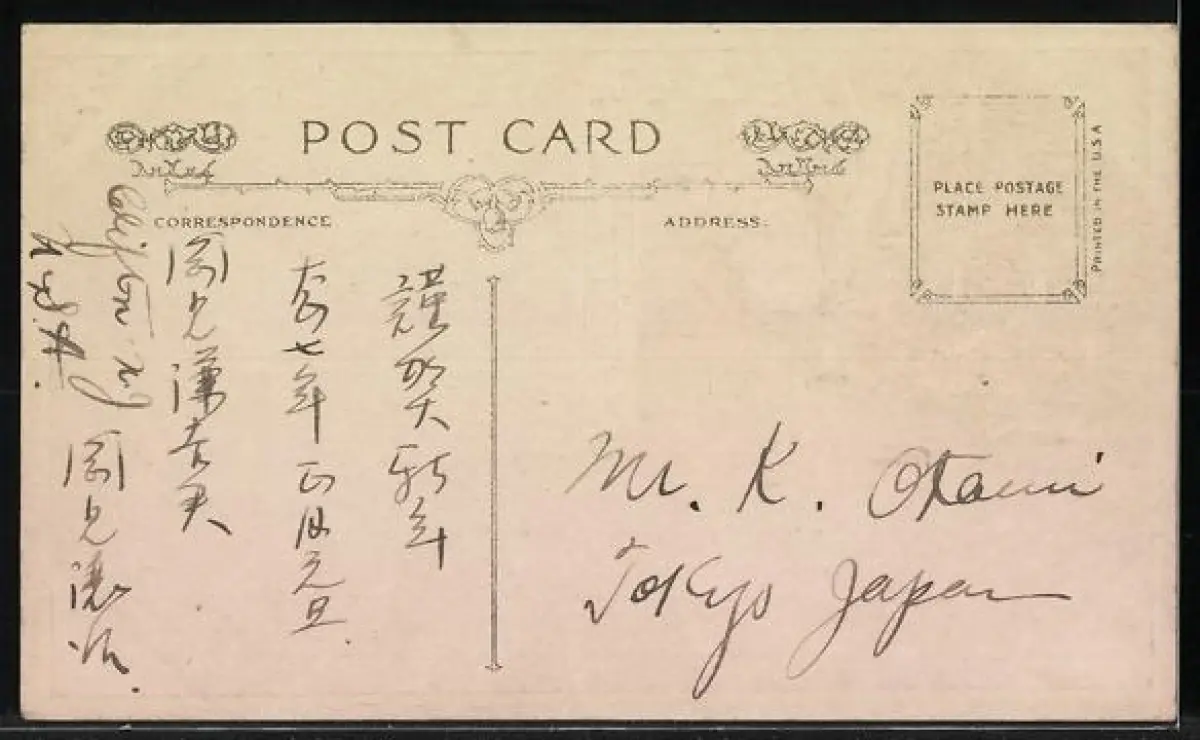 POST CARD
CORRESPONDENCE
ADDRESS.
PLACE POSTAGE
STAMP HERE
PRINTED IN THE U.S.A
謹賀新年
七年正月元旦.
岡見
Clifton N.J
U.S.A.
岡見
Mr. K. Okami
Tokyo Japan